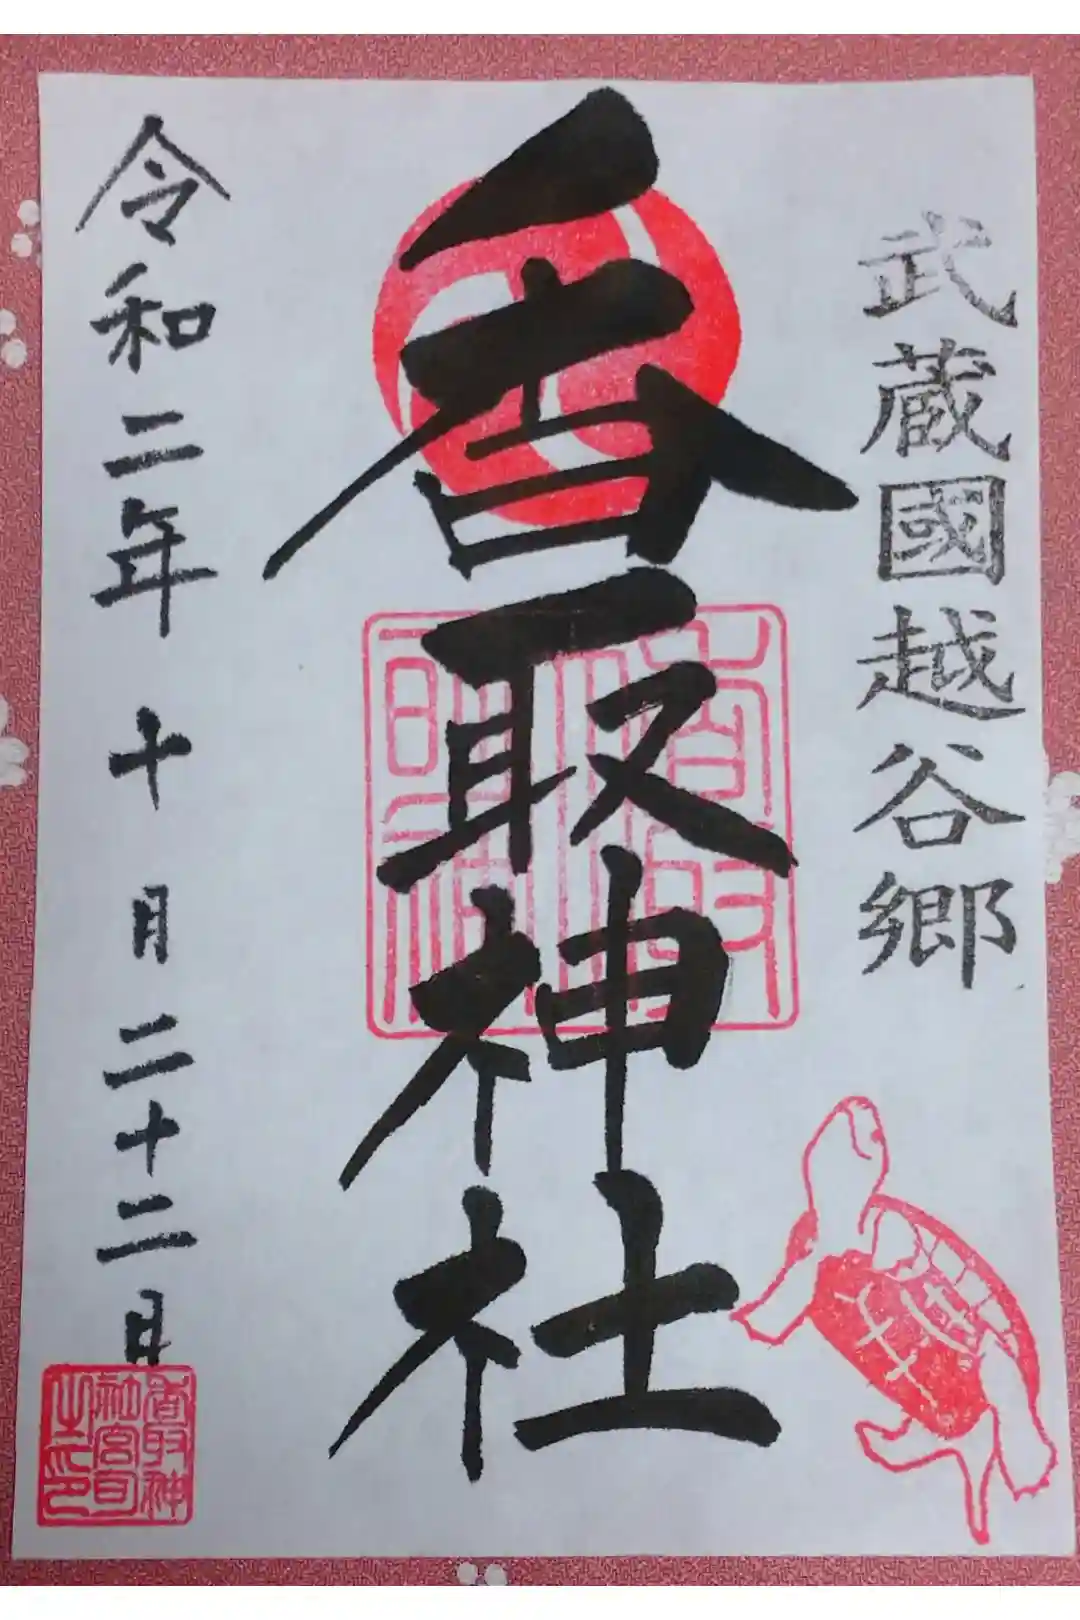 武蔵國越谷郷
香取神社
香取明神
令和二年十月二十二日
香取神
社宮司
之印